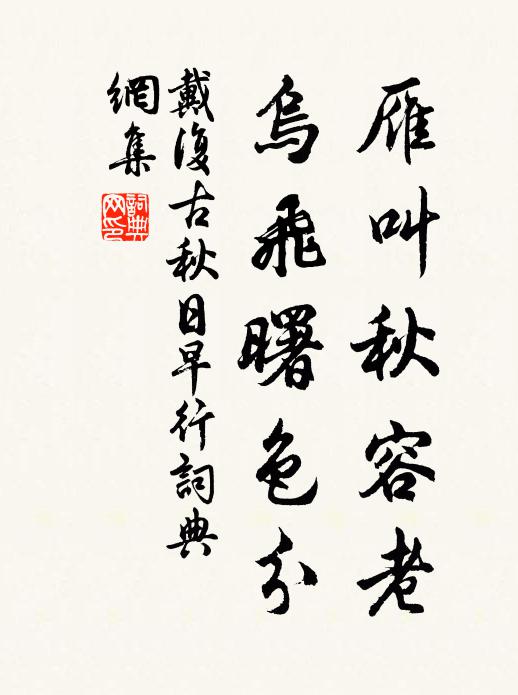 雁叫秋容老
烏飛曙色分
戴復古秋日早行詞典
網集
詞典
网印